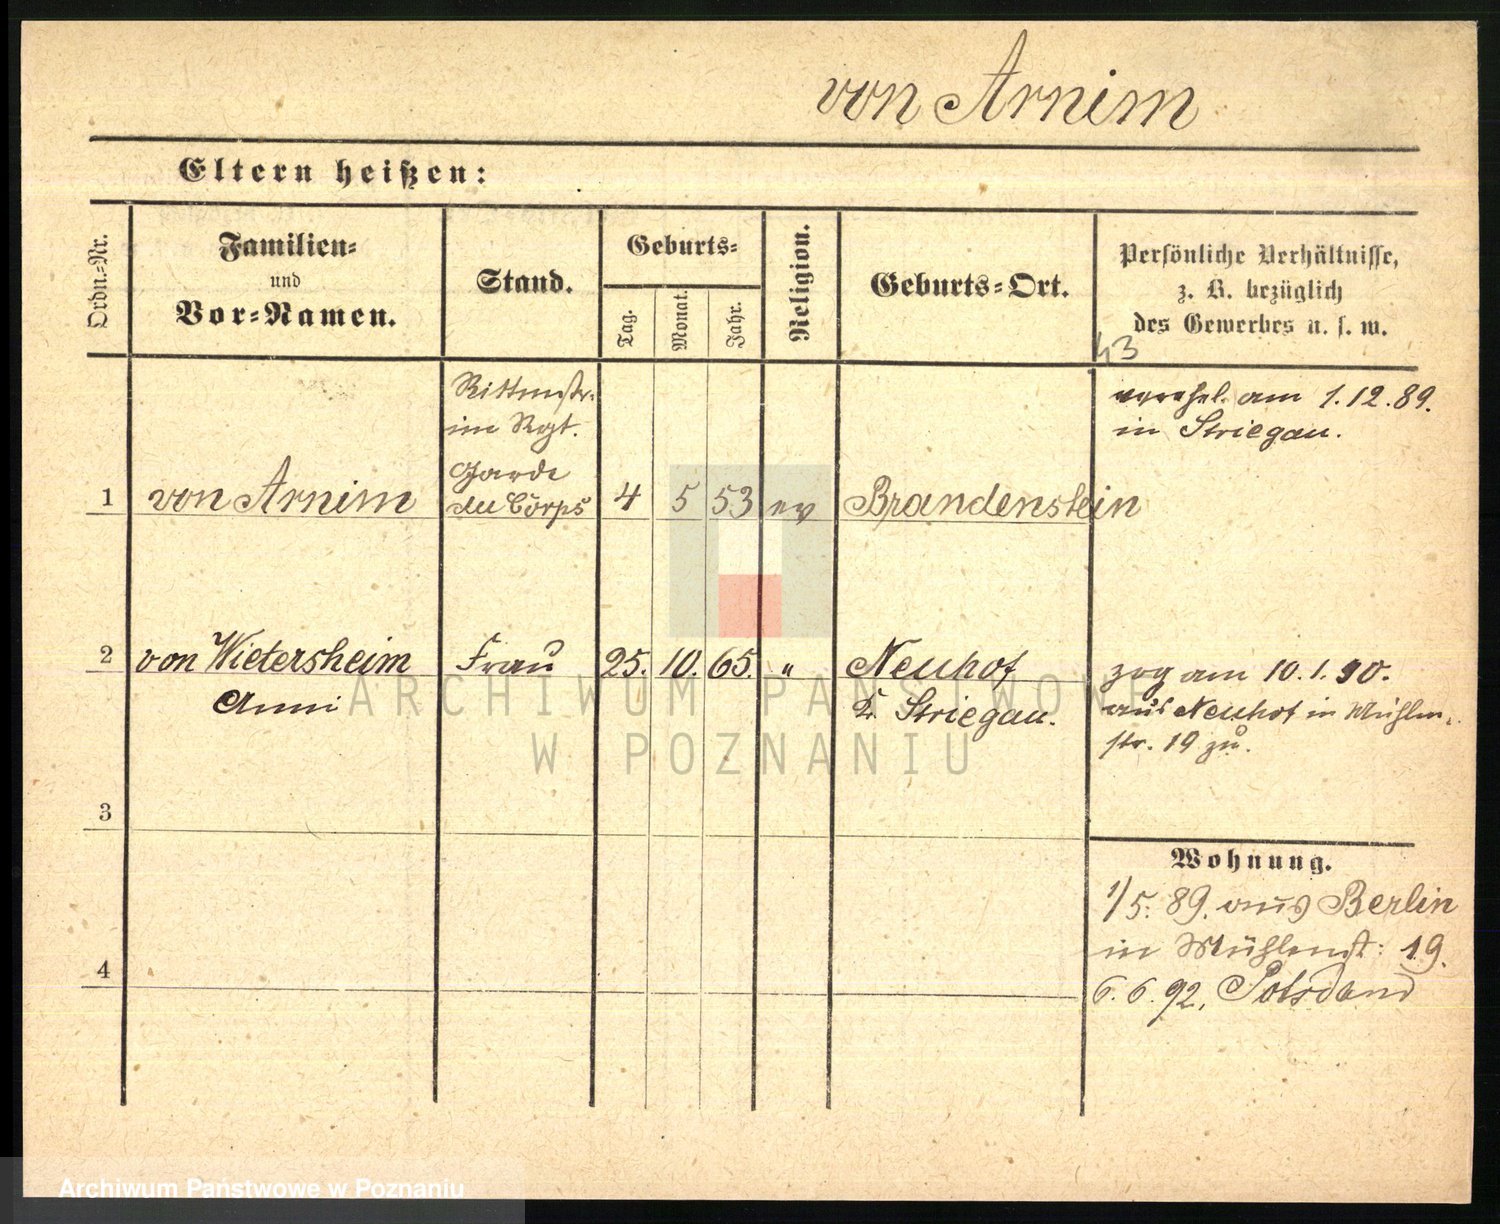 von Arnim
Eltern heißen:
Ordn.=Nr.
Familien=
und
Vor=Namen.
Stand.
Geburts=
Tag.
Monat.
Jahr.
Religion.
Geburts=Ort.
Persönliche Verhältnisse,
z. B. bezüglich
des Gewerbes u. s. w.
43
Rittmstr.
im Rgt.
Garde
du Corps
1 von Arnim 4 5 53 ev Brandenstein
verehel. am 1.12.89.
in Striegau.
2 von Wietersheim Frau 25. 10. 65. " Neuhof
Anni
Striegau.
zog am 10.1.90.
aus Neuhof in Mühlen
str. 19 zu.
3
4
Wohnung.
1/5. 89. aus Berlin
in Mühlenst: 19.
6.6.92. Potsdam
ARCHIWUM PAŃSTWOWE
W POZNANIU
Archiwum Państwowe w Poznaniu